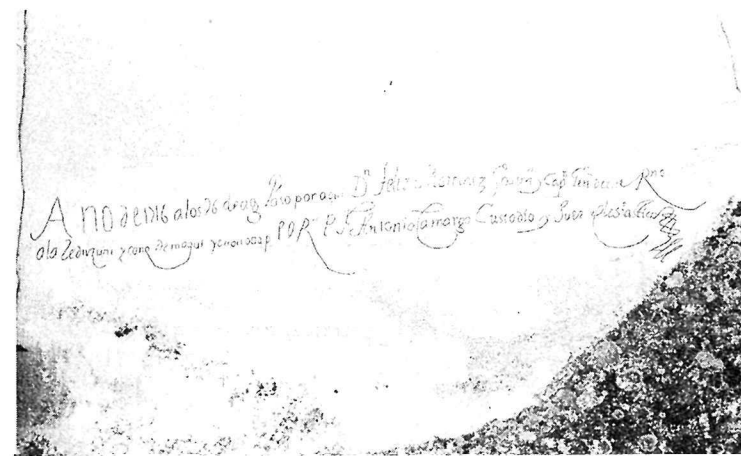 Año de 1716 a los 26 de Agto paso por aqui Dn Feliz Martinez Govr y Capn Genl de este Rno
a la reduczion y conqta de Moqui y en su comp el Rdo P. F. Antonio Camargo Custodio y Juez eclesiastico